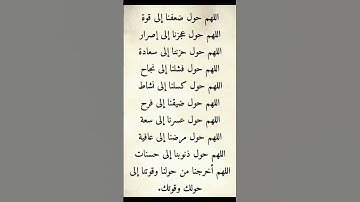 اللهم حول ضعفنا إلى قوة
اللهم حول عجزنا إلى إصرار
اللهم حول حزننا إلى سعادة
اللهم حول فشلنا إلى نجاح
اللهم حول كسلنا إلى نشاط
اللهم حول ضيقنا إلى فرح
اللهم حول عسرنا إلى سعة
اللهم حول مرضنا إلى عافية
اللهم حول ذنوبنا إلى حسنات
اللهم أخرجنا من حولنا وقوتنا إلى
حولك وقوتك.